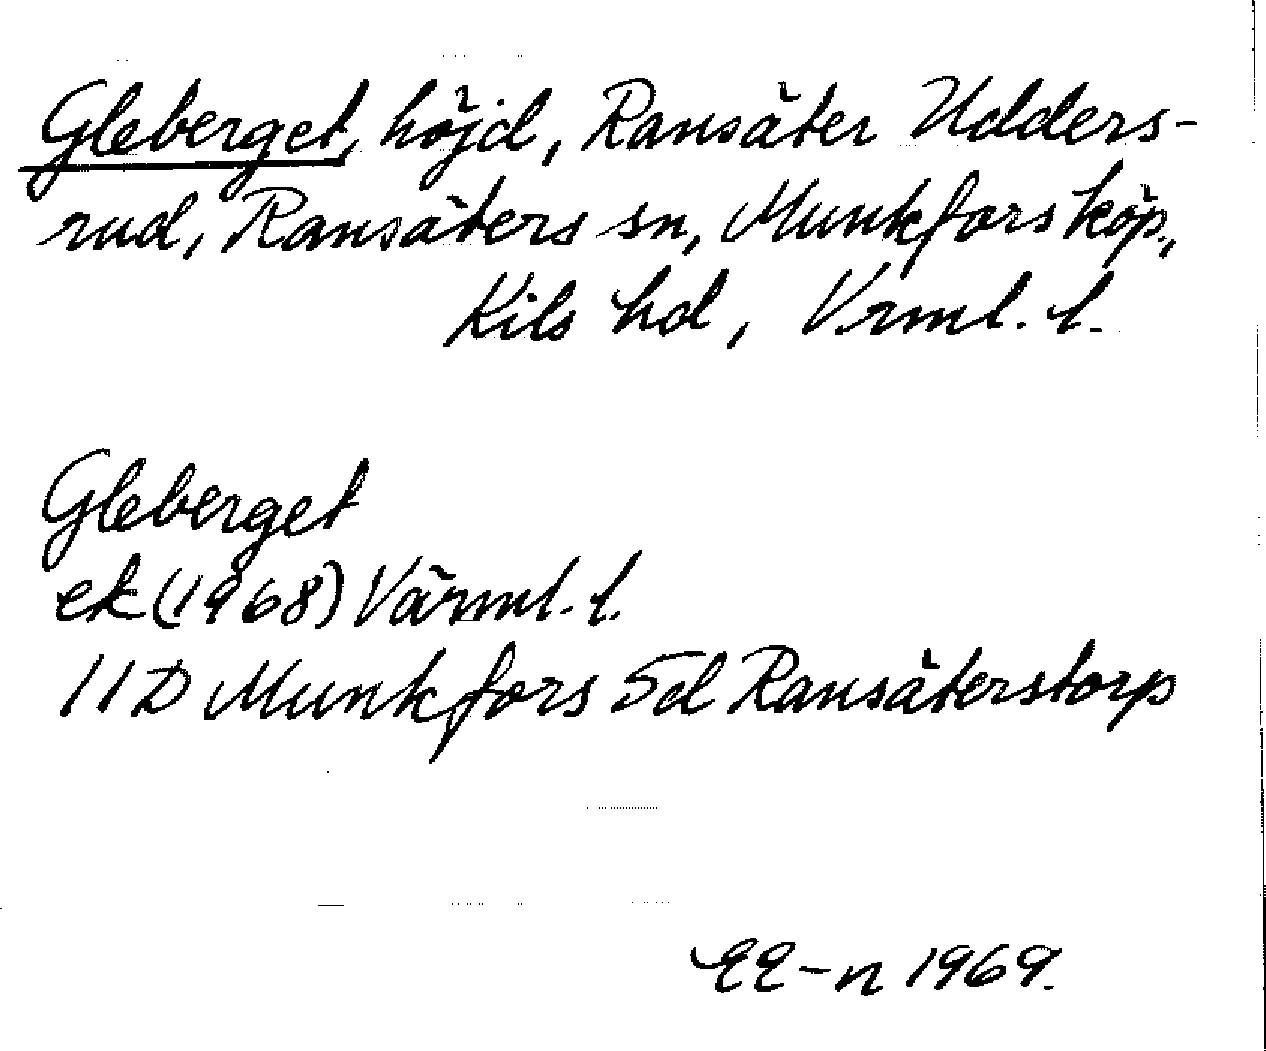 Gleberget, höjd, Ransäter Udders-
rud, Ransäters sn, Munkfors köp.,
Kils hd, Vrml. l.
Gleberget
ek (1968) Värml. l.
11D Munkfors 5d Ransäterstorp
EE-n 1969.